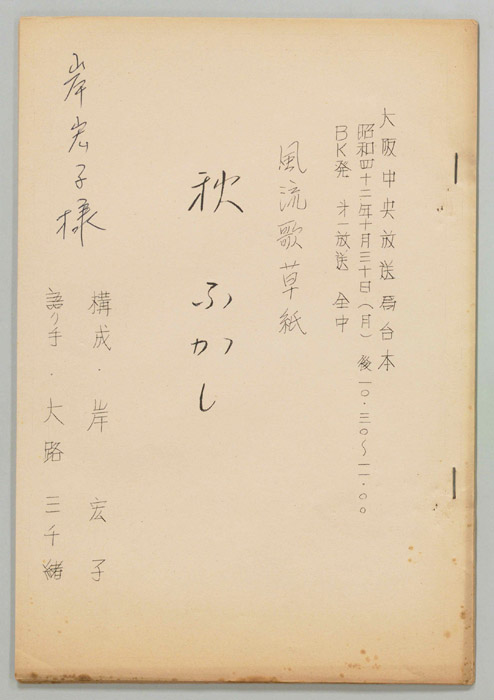 大阪中央放送局台本
昭和四十二年十月三十日(月) 後一〇・三〇〜一一・〇〇
BK発 才一放送 全中
風流歌草紙
秋 ふかし
構成・岸 宏子
語り手・大路 三千緒
岸宏子様